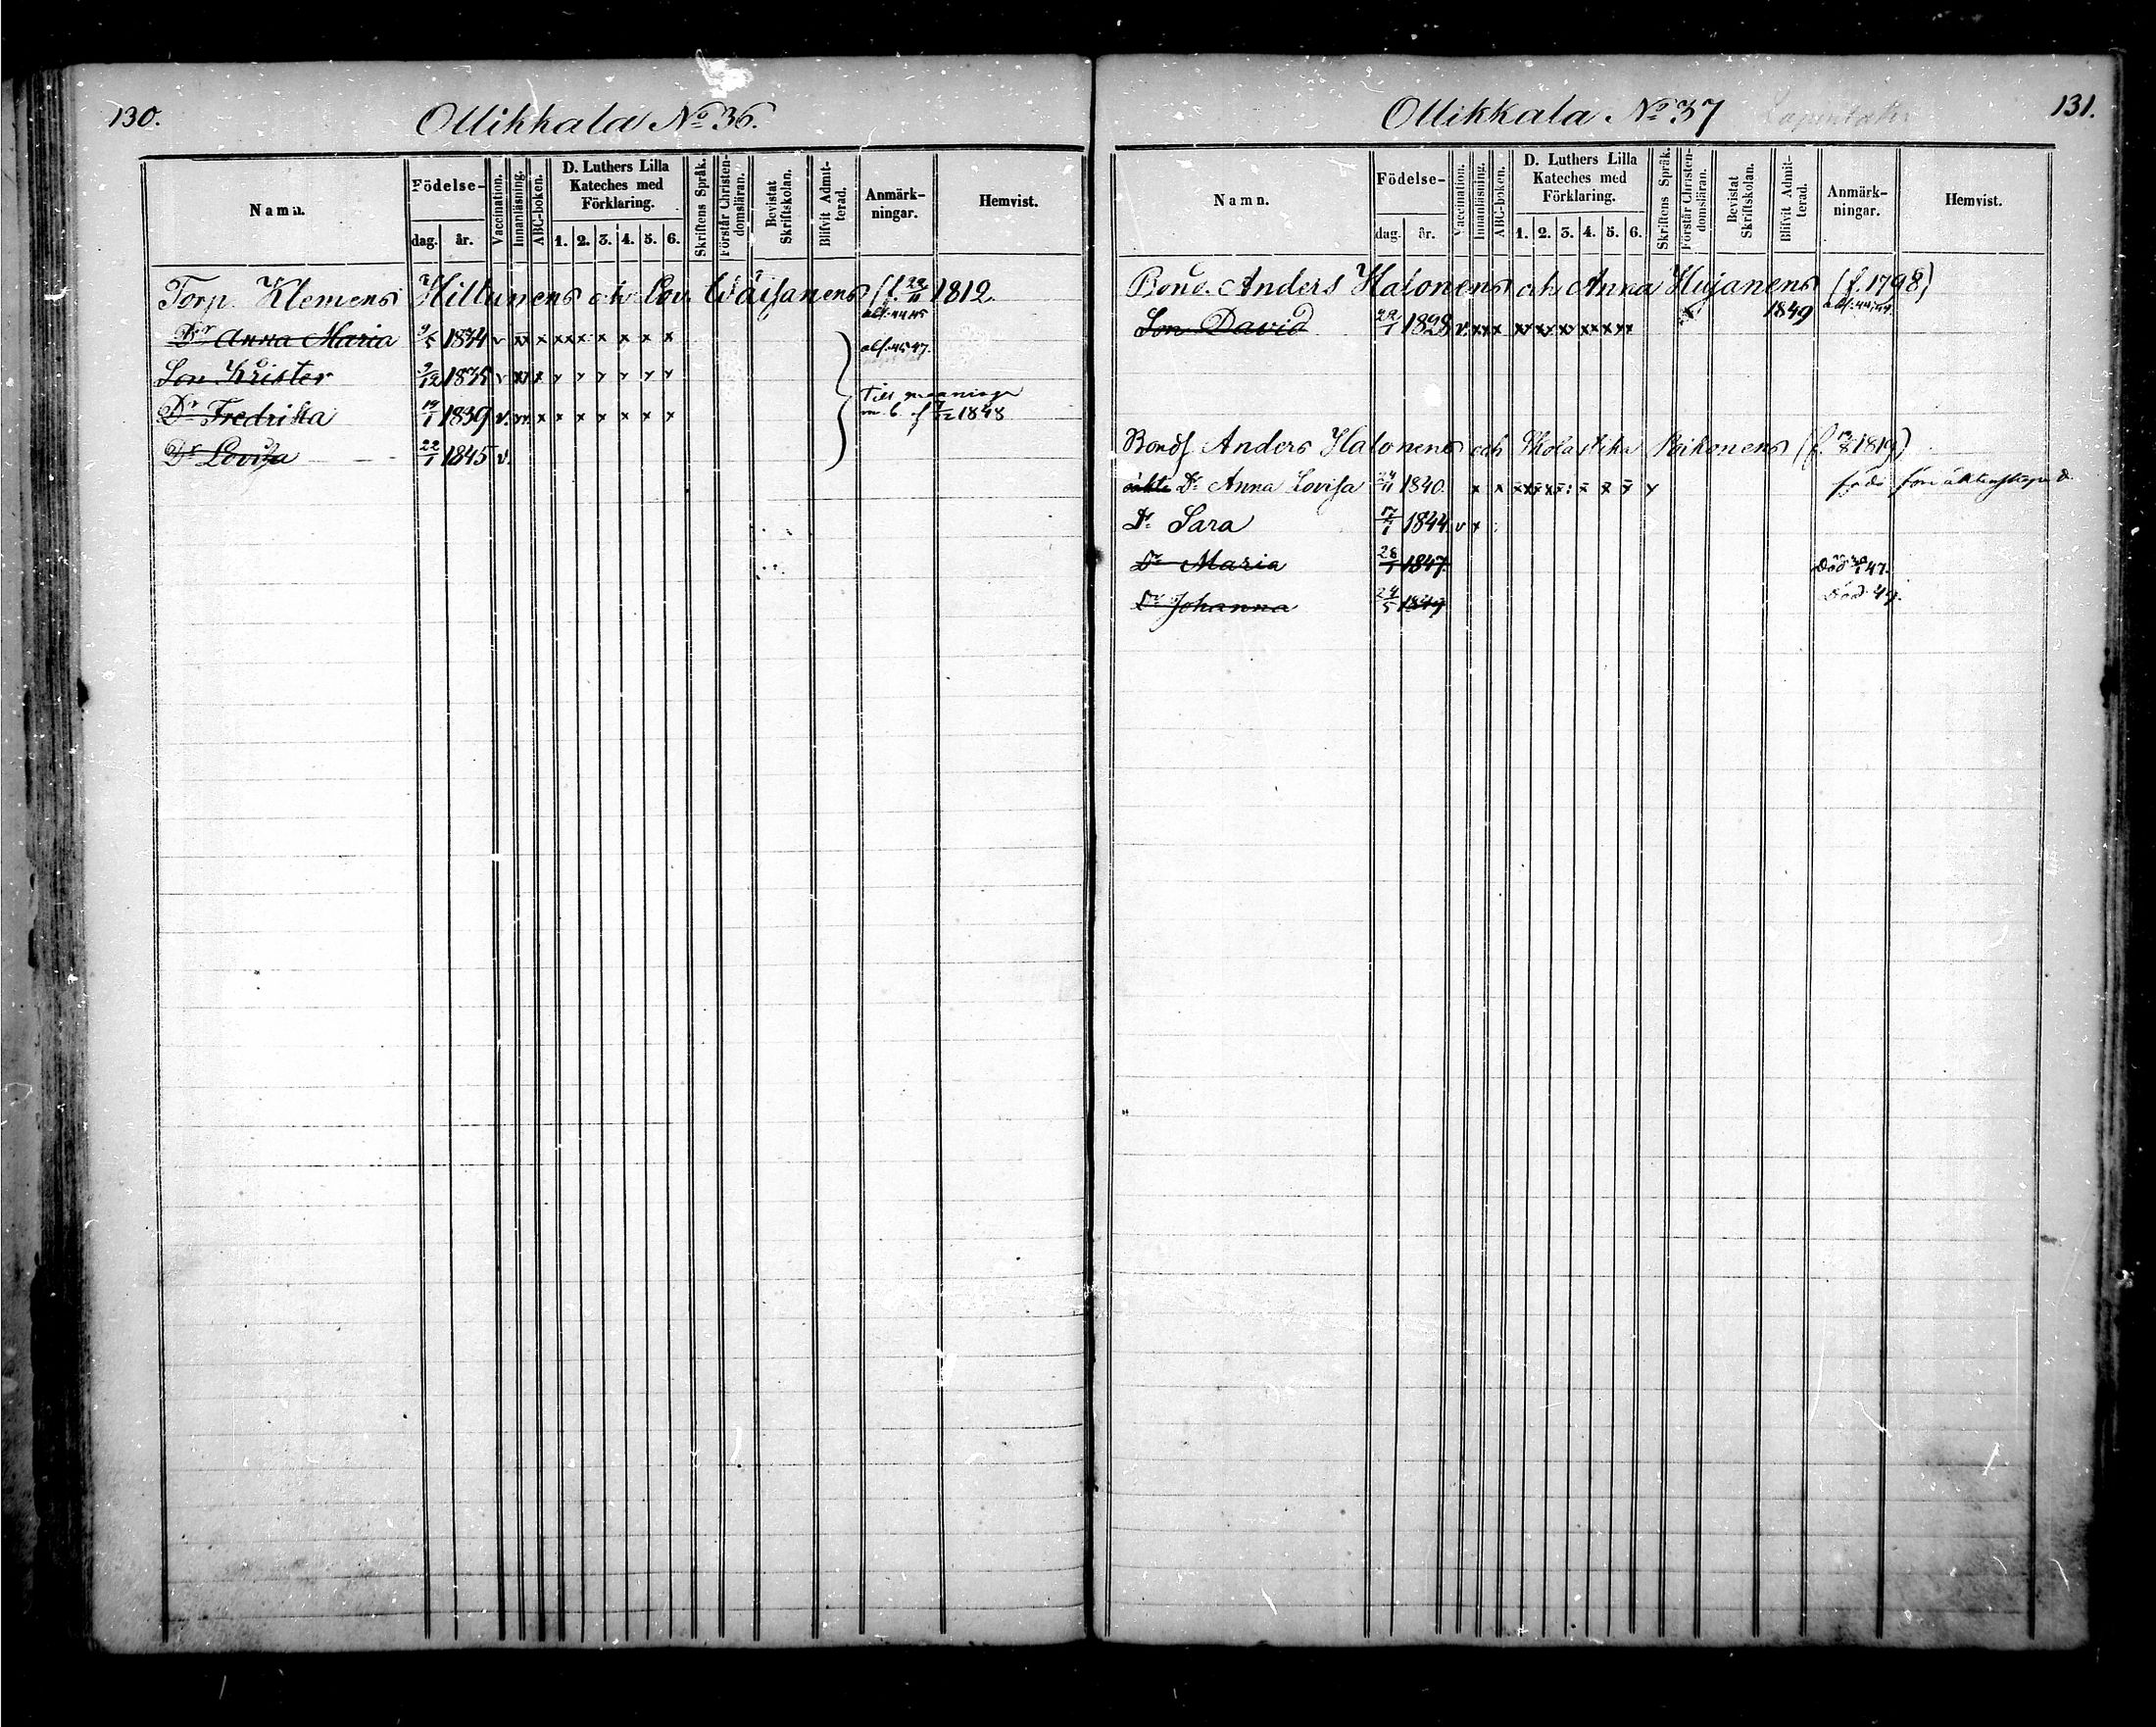 130.
Ollikkala No 36.
Namn.
Födelse-
dag. år.
Vaccination.
Innanläsning.
ABC-boken.
D. Luthers Lilla
Kateches med
Förklaring.
1. 2. 3. 4. 5. 6.
Skriftens Språk.
Förstår Christen-
domsläran.
Bevistat
Skriftskolan.
Blifvit Admit-
terad.
Anmärk-
ningar.
Hemvist.
Torp. Klemens Hiltunens och Lov. Wäisänens (f. 22/11 1812
Dr Anna Maria 9/5 1834 v xx x xxx x x x x abs. 44 45
Son Krister 9/12 1838 v xx x abs. 45 47.
Dr Fredrika 19/1 1839 v. x x x x x x x
m. b. 1848
Dr Lovisa 22/1 1845 v.
131.
Ollikkala No 37
Namn.
Födelse-
dag. år.
Vaccination.
Innanläsning.
ABC-boken.
D. Luthers Lilla
Kateches med
Förklaring.
1. 2. 3. 4. 5. 6.
Skriftens Språk.
Förstår Christen-
domsläran.
Bevistat
Skriftskolan.
Blifvit Admit-
terad.
Anmärk-
ningar.
Hemvist.
Bond. Anders Halonens och Anna Hujanens (f. 1798)
Son David 22/1 1828 v. xxx 1849
Bonds Anders Halonens och Skolastika (f. 1819)
Dr Anna Lovisa 24/11 1840. x x
Dr Sara 7/1 1844. v x
Dr Maria 28/1 1847. Död 47.
Dr Johanna 24/5 1849 Död 49.